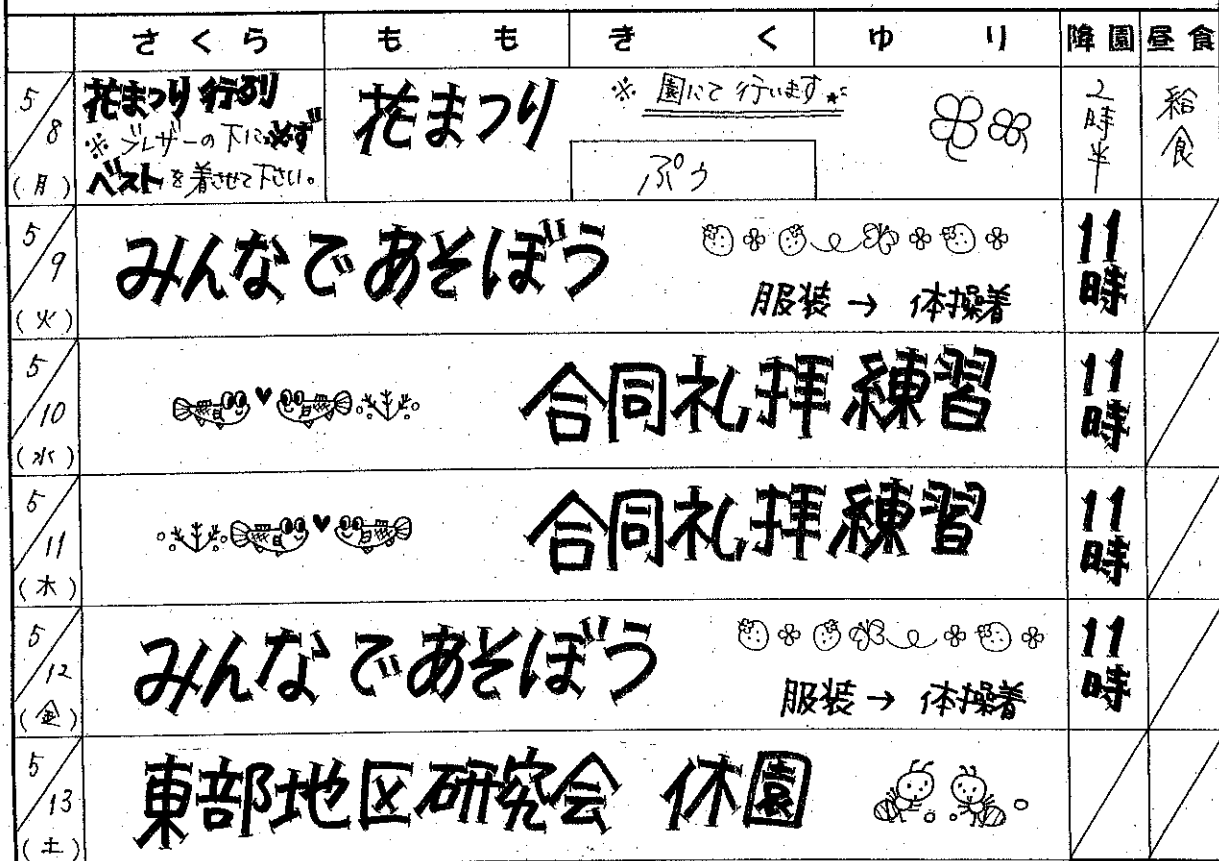 さくら もも きく ゆり 降園 昼食
5/8(月)
花まつり行列
※ブレザーの下に必ず
ベストを着させて下さい。
花まつり
※園にて行います。
ぷう
2時半
給食
5/9(火)
みんなであそぼう
服装→体操着
11時
5/10(水)
合同礼拝練習
11時
5/11(木)
合同礼拝練習
11時
5/12(金)
みんなであそぼう
服装→体操着
11時
5/13(土)
東部地区研究会 休園